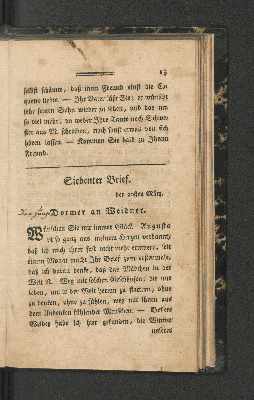 15
selbst schämte, daß mein Freund einst die Co-
quette liebte. — Ihr Vater läßt Sie; er wünscht
sehr seinen Sohn wieder zu sehen, und das um
so viel mehr, da weder Ihre Tante noch Schwe-
ster aus N. schreiben, noch sonst etwas von sich
hören lassen. — Kommen Sie bald zu Ihrem
Freund.
Siebenter Brief.
den 20sten März.
Dormer an Weidner.
Wünschen Sie mir immer Glück. Augusta
ist so ganz aus meinem Herzen verbannt,
daß ich mich ihrer seit nicht mehr erinnert, seit
einem Monat macht Ihr Brief zum erstenmale,
daß ich daran denke, daß das Mädchen in der
Welt ist. Weg mit solchen Geschöpfen, die nur
leben, um in der Welt herum zu flattern, ohne
zu denken, ohne zu fühlen, weg mit ihnen aus
dem Andenken fühlender Menschen. — Bessere
Weiber habe ich hier gefunden, die Wittwe
unsers